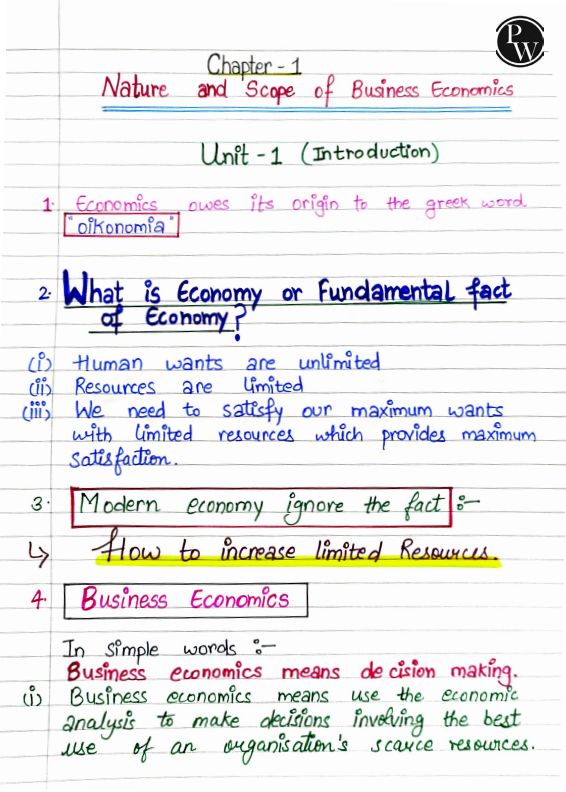 PW
Chapter - 1
Nature and Scope of Business Economics
Unit - 1 (Introduction)
1. Economics owes its origin to the greek word
"oikonomia"
2. What is Economy or Fundamental fact
of Economy?
(i) Human wants are unlimited
(ii) Resources are limited
(iii) We need to satisfy our maximum wants
with limited resources which provides maximum
satisfaction.
3. Modern economy ignore the fact :-
↳ How to increase limited Resources.
4. Business Economics
In simple words :-
Business economics means decision making.
(i) Business economics means use the economic
analysis to make decisions involving the best
use of an organisation's scarce resources.